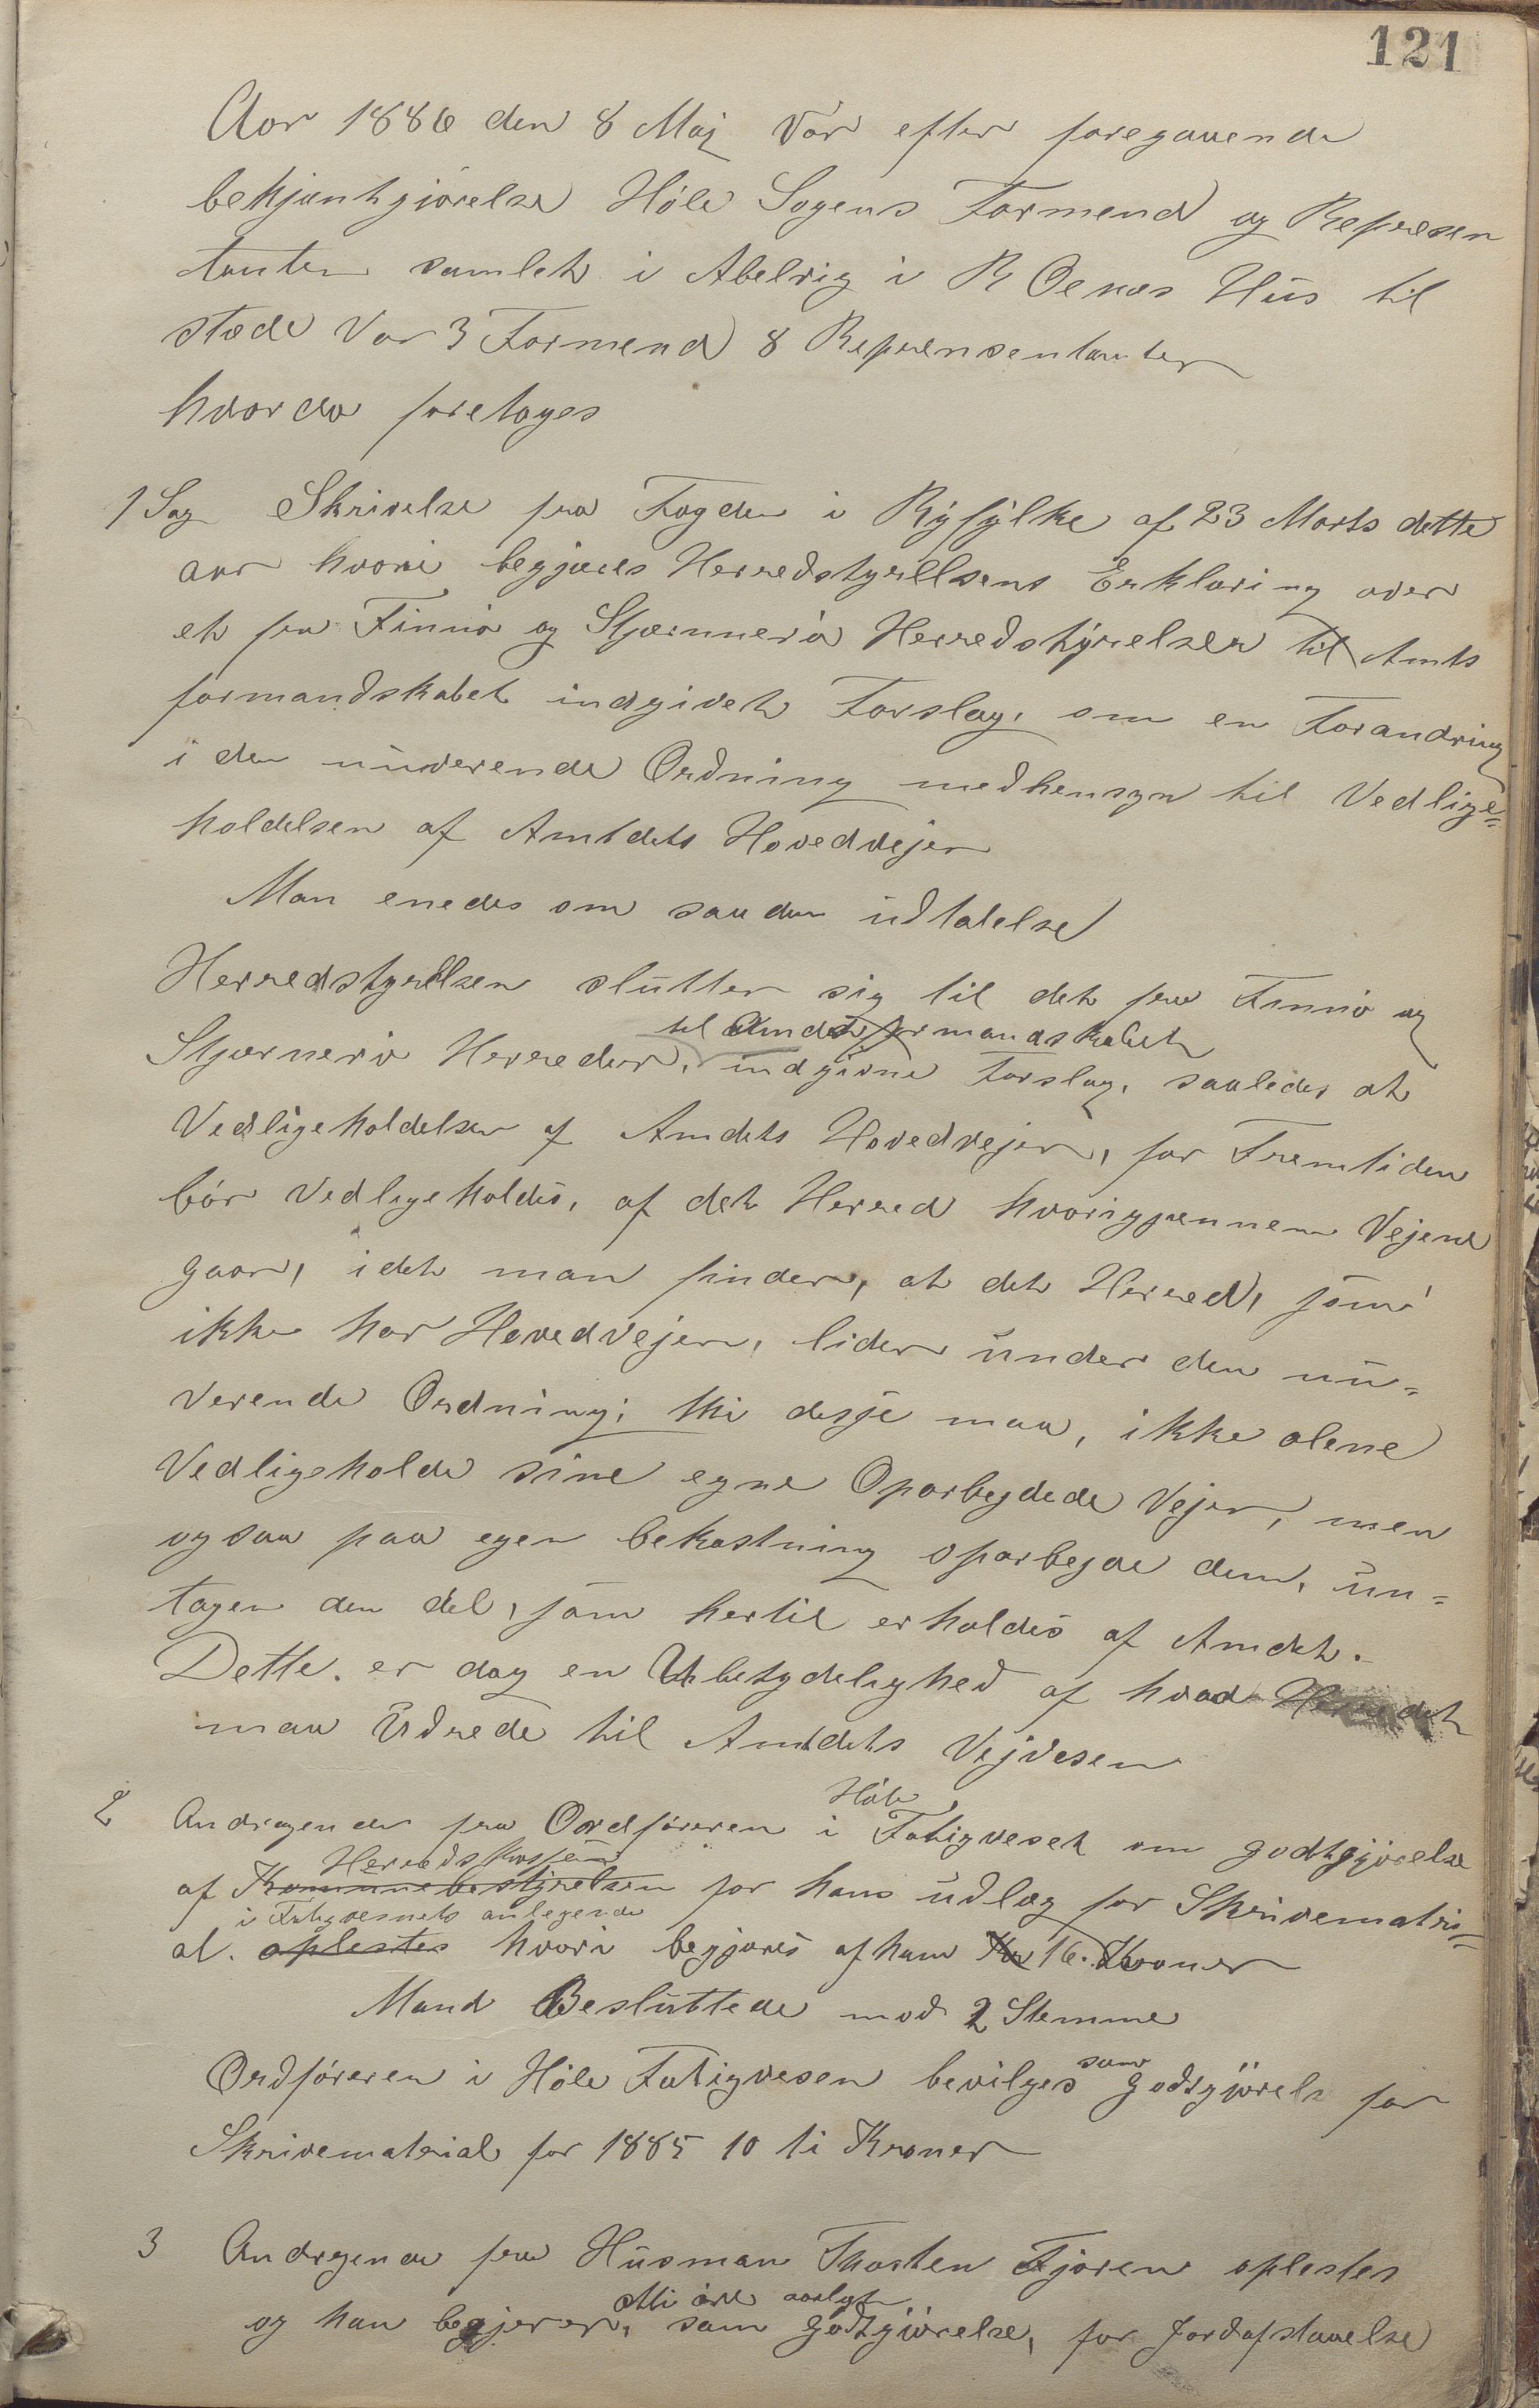 121
Aar 1886 den 8 Maj Var efter foregaaende
bekjentgjørelse Høle Sogens Formend og Represen
tanter samlet i Abelvig i R Oenæs Hus til
stæde Var 3 Formend 8 Reprensentanter
hvorda foretoges
1 Sag Skrivelse fra Fogden i Ryfylke af 23 Marts dette
aar hvori begjæres Herredstyrelsens Erklæring over
et fra Finnø og Stjærnnerø Herredstyrelser til Amts
formandskabet indgivet Forslag, om en Forandring
i den nuverende Ordning medhensyn til Vedlige=
holdelsen af Amtdets Hovedvejer
Man enedes om saadan udtalelse
Herredstyrelsen slutter sig til det fra Finnø og
til Amdetsformandskabet
Stjærnerø Herreder, indgivne Forslag, saaledes at
Vedligeholdelsen af Amdets Hovedvejer, for Fremtiden
bør Vedligeholdes, af det Herred hvorigjennem Vejene
gaar, idet man finder, at det Herred, som
ikke har Hovedvejer, lider under den nu=
verende Ordning; thi desse maa, ikke alene
Vedligeholde sine egne Oparbejdede Vejer, men
ogsaa paa egen bekostning oparbejde dem, un=
tagen den del, som hertil erholdes af Amdet.
Dette er dog en Ubetydelighed af hvad Herredet
maa Udrede til Amtdets Vejvesen
Høle
2 Andragende fra Ordføreren i Fatigveset om godtgjørelse
Herredskassen
af Kommunebestyrelsen for hans udlæg for Skrivematri=
i Fatigvesnets anlegende
al. oplestes hvori begjæres af ham Kr 16. Kroner
Mand Besluttede mod 2 Stemme
som
Ordføreren i Høle Fatigvesen bevilges godtgjørels for
Skrivematerial for 1885 10 ti Kroner
3 Andragende fra Husman Thorsten Fjøren oplestes
otti øre aarligt
og han begjerer, som godtgjørelse, for Jordafstaaelse